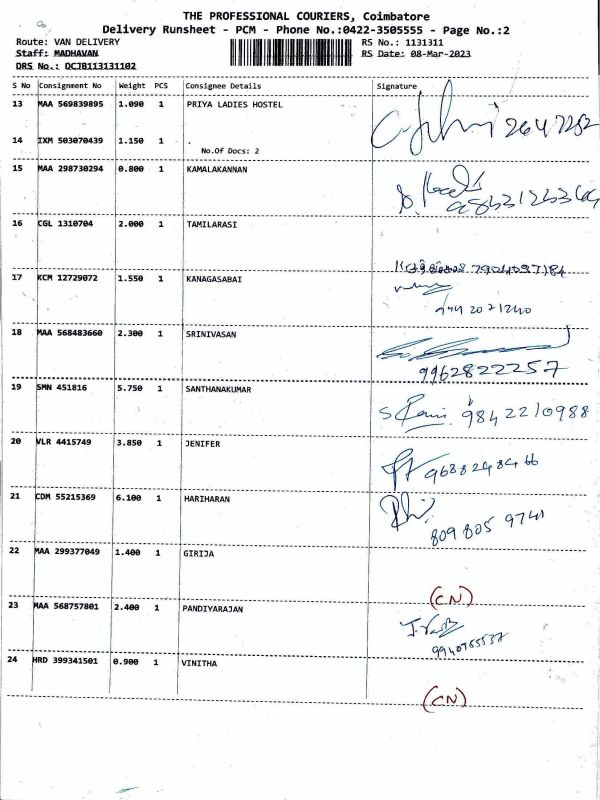 THE PROFESSIONAL COURIERS, Coimbatore
Delivery Runsheet - PCM - Phone No.:0422-3505555 - Page No.:2
Route: VAN DELIVERY RS No.: 1131311
Staff: MADHAVAN RS Date: 08-Mar-2023
DRS No.: DCJB113131102
S No Consignment No Weight PCS Consignee Details Signature
13 MAA 569839895 1.090 1 PRIYA LADIES HOSTEL
14 IXM 503070439 1.150 1 .
No.Of Docs: 2
15 MAA 298730294 0.800 1 KAMALAKANNAN
16 CGL 1310704 2.000 1 TAMILARASI
7904097184
17 KCM 12729072 1.550 1 KANAGASABAI
18 MAA 568483660 2.300 1 SRINIVASAN
9962822257
19 SMN 451816 5.750 1 SANTHANAKUMAR
9842210988
20 VLR 4415749 3.850 1 JENIFER
9688248466
21 CDM 55215369 6.100 1 HARIHARAN
809 805 9741
22 MAA 299377049 1.400 1 GIRIJA
(CN)
23 MAA 568757801 2.400 1 PANDIYARAJAN
24 HRD 399341501 0.900 1 VINITHA
(CN)